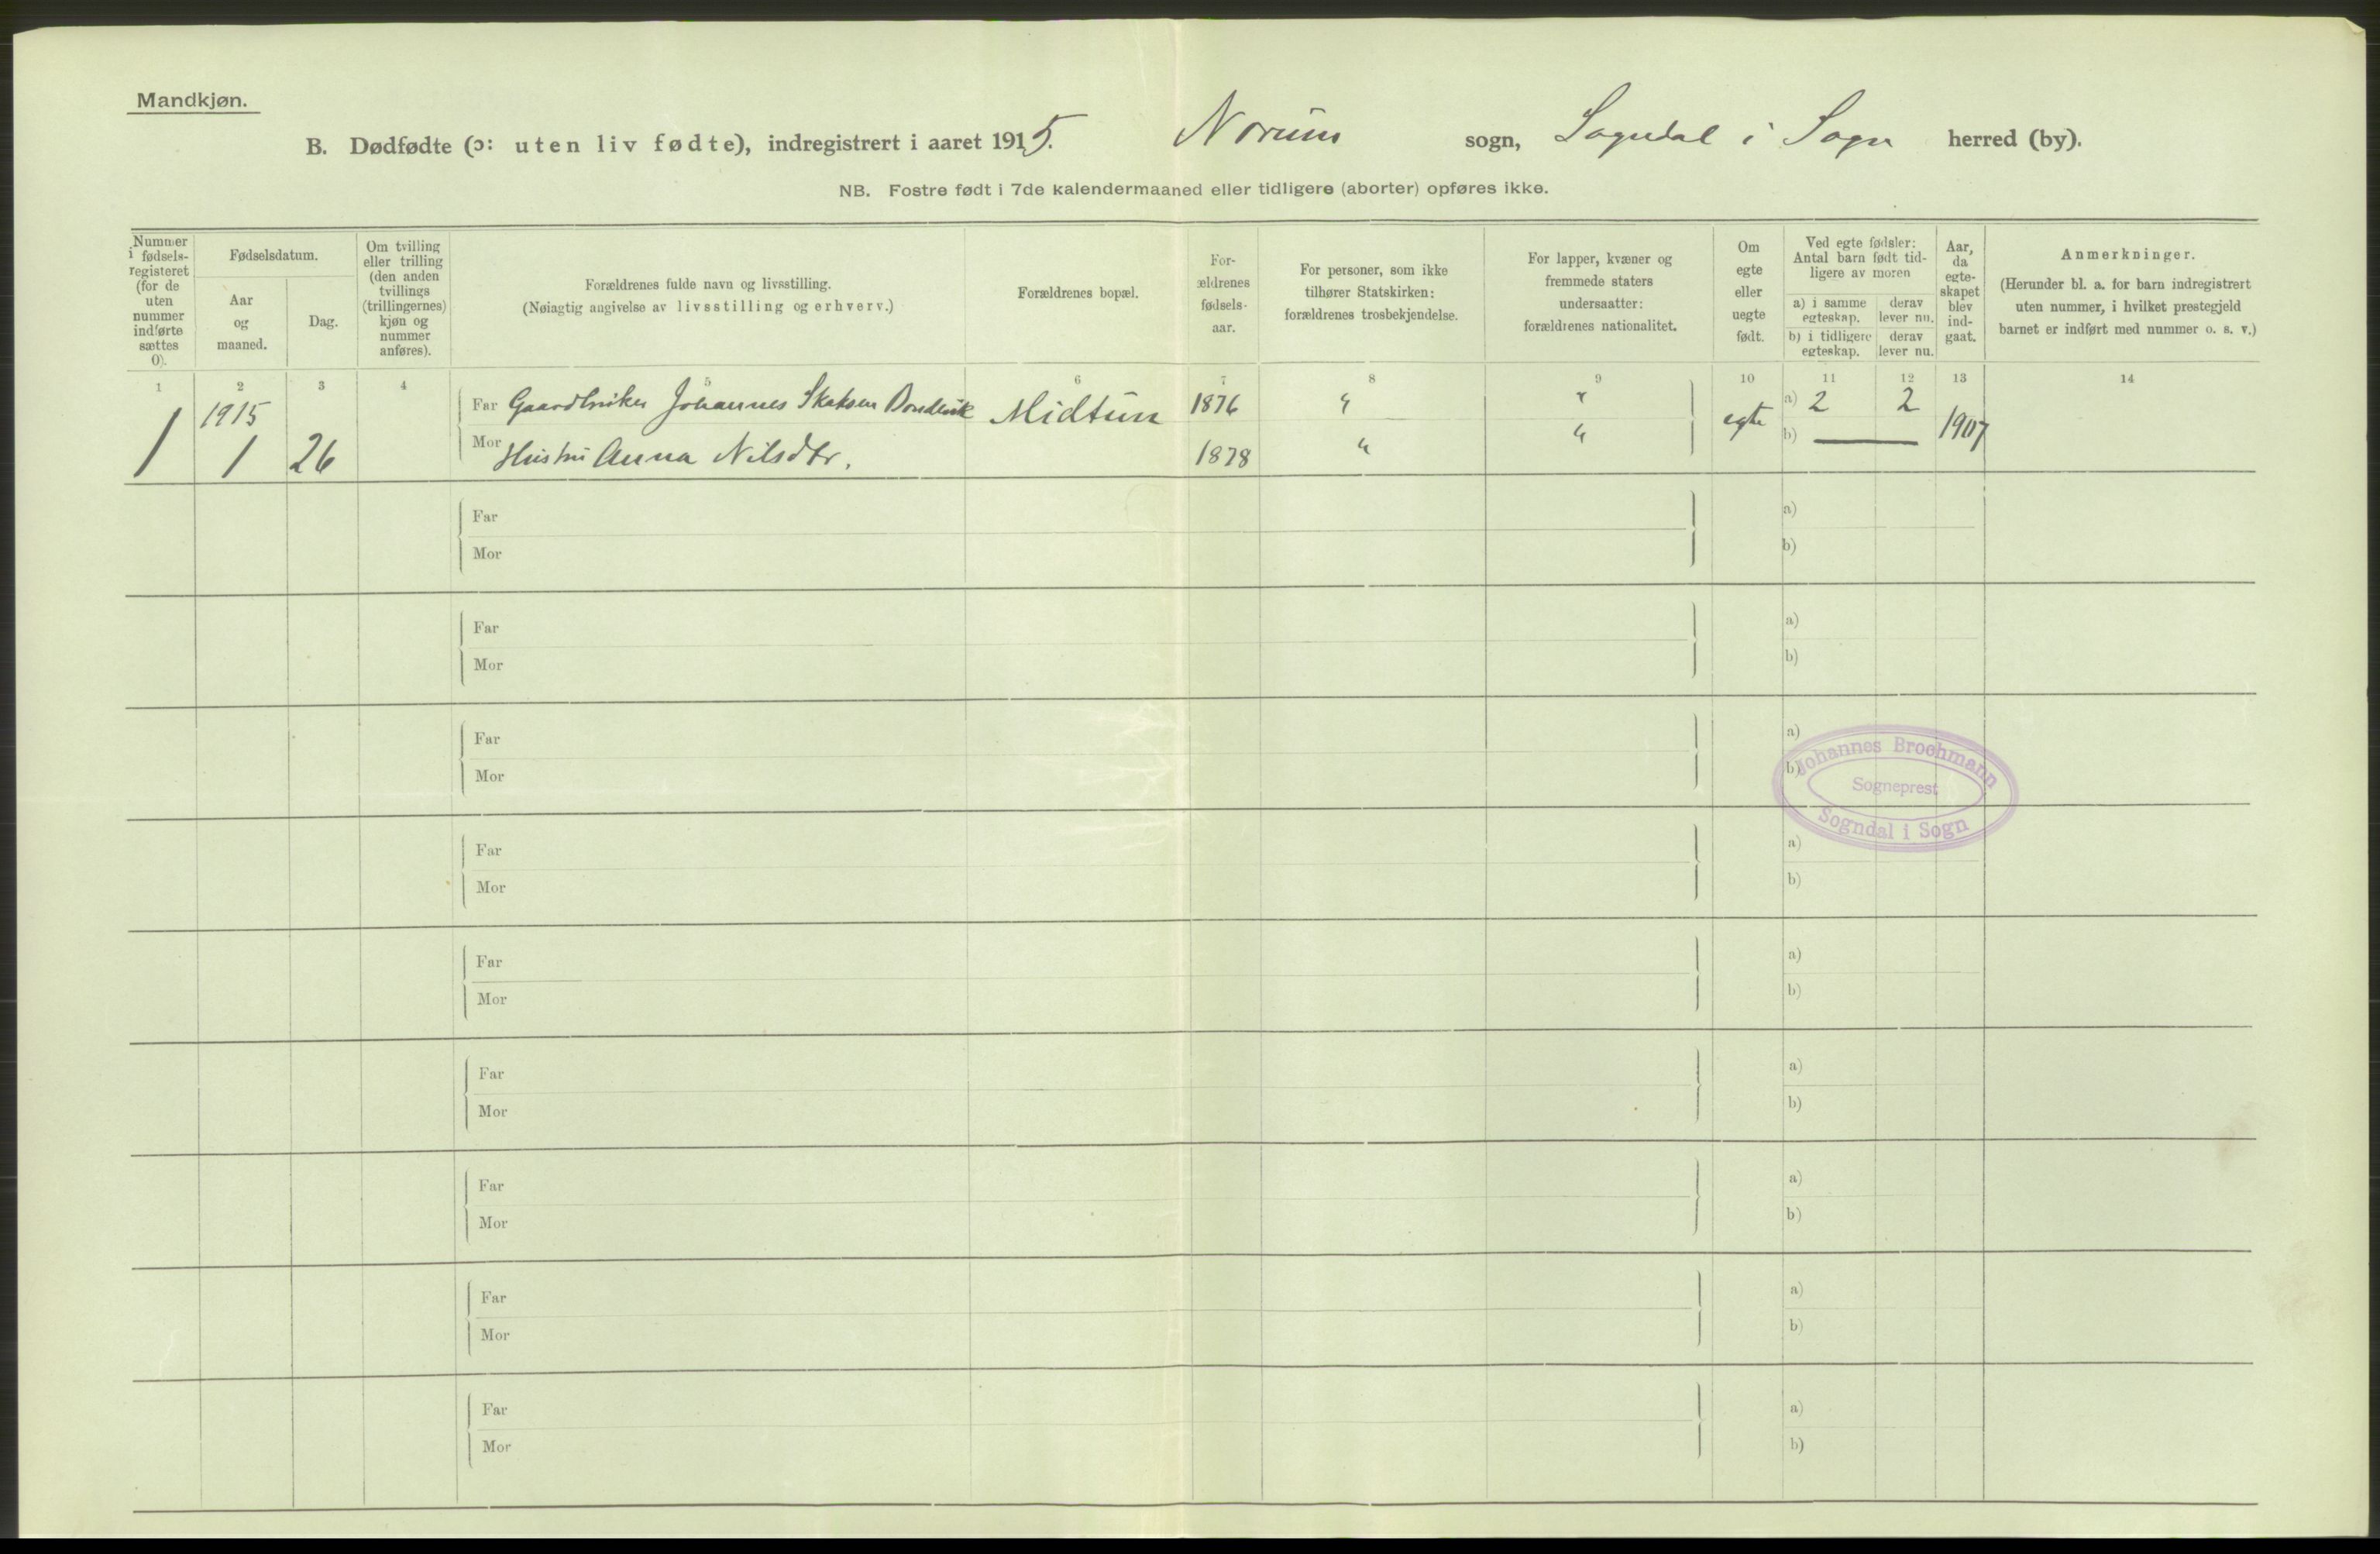 Mandkjøn.
B. Dødfødte (ɔ: uten liv fødte), indregistrert i aaret 1915. Norum sogn, Sogndal i Sogn herred (by).
NB. Fostre født i 7de kalendermaaned eller tidligere (aborter) opføres ikke.
Nummer
i fødsels-
registeret
(for de
uten
nummer
indførte
sættes
0).
Fødselsdatum.
Aar
og
maaned.
Dag.
Om tvilling
eller trilling
(den anden
tvillings
(trillingernes)
kjøn og
nummer
anføres).
Forældrenes fulde navn og livsstilling.
(Nøiagtig angivelse av livsstilling og erhverv.)
Forældrenes bopæl.
For-
ældrenes
fødsels-
aar.
For personer, som ikke
tilhører Statskirken:
forældrenes trosbekjendelse.
For lapper, kvæner og
fremmede staters
undersaatter:
forældrenes nationalitet.
Om
egte
eller
uegte
født.
Ved egte fødsler:
Antal barn født tid-
ligere av moren
a) i samme
egteskap.
derav
lever nu.
b) i tidligere
egteskap.
derav
lever nu.
Aar,
da
egte-
skapet
blev
ind-
gaat.
Anmerkninger.
(Herunder bl. a. for barn indregistrert
uten nummer, i hvilket prestegjeld
barnet er indført med nummer o. s. v.)
1 2 3 4 5 6 7 8 9 10 11 12 13 14
1 1915 1 26
Far Gaardbruker Johannes Midtun 1876 " " egte a) 2 2 1907
Mor Hustru Anna Nilsdtr. 1878 " " b) —
Far a)
Mor b)
Far a)
Mor b)
Far a)
Mor b)
Johannes Brochmann
Sogneprest
Sogndal i Sogn
Far a)
Mor b)
Far a)
Mor b)
Far a)
Mor b)
Far a)
Mor b)
Far a)
Mor b)
Far a)
Mor b)